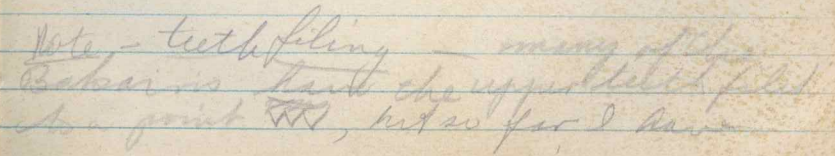 Note - teeth filing - many of the
Bakairis have the upper teeth filed
to a point, but so far I have